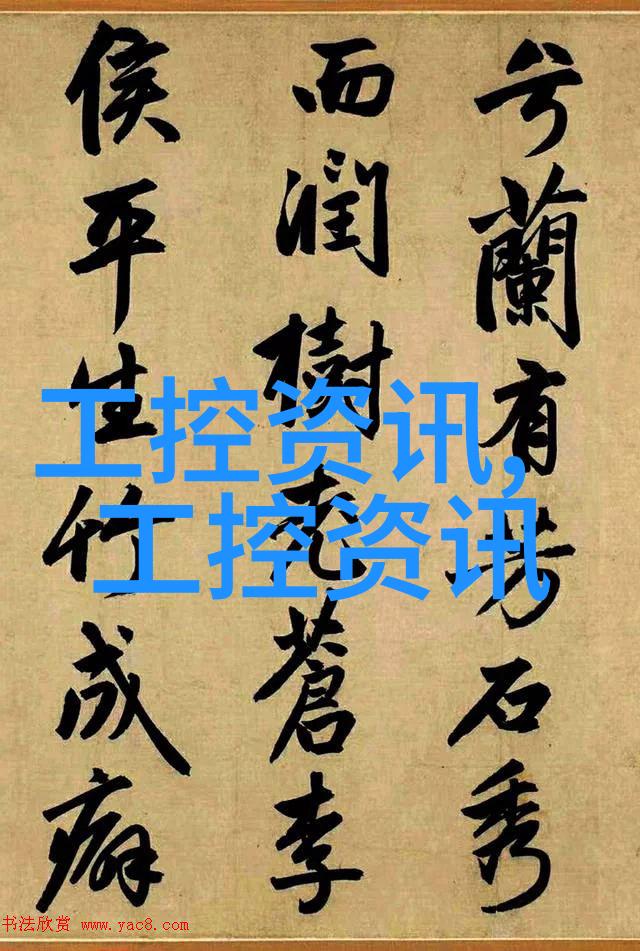 兮蘭有芳石秀
而潤樹老蒼李
侯平生竹成癖
工控资讯,
工控资讯
书法欣赏 www.yac8.com